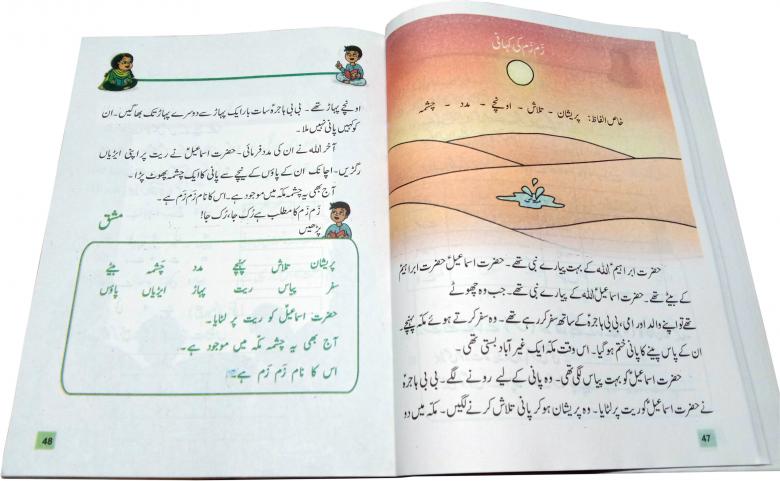 زَم زَم کی کہانی
خاص الفاظ: پریشان - تلاش - اونچے - مدد - چشمہ
حضرت ابراہیمؑ اللہ کے بہت پیارے نبی تھے۔ حضرت اسماعیلؑ حضرت ابراہیمؑ
کے بیٹے تھے۔ حضرت اسماعیلؑ اللہ کے پیارے نبی تھے۔ جب وہ چھوٹے
تھے تو اپنے والد اور امی، بی بی ہاجرہؑ کے ساتھ سفر کر رہے تھے۔ وہ سفر کرتے ہوئے مکّہ پہنچے۔
ان کے پاس پینے کا پانی ختم ہو گیا۔ اس وقت مکّہ ایک غیر آباد بستی تھی۔
حضرت اسماعیلؑ کو بہت پیاس لگی تھی۔ وہ پانی کے لیے رونے لگے۔ بی بی ہاجرہؑ
نے حضرت اسماعیلؑ کو ریت پر لٹایا۔ وہ پریشان ہو کر پانی تلاش کرنے لگیں۔ مکّہ میں دو
47
اونچے پہاڑ تھے۔ بی بی ہاجرہؑ سات بار ایک پہاڑ سے دوسرے پہاڑ تک بھاگیں۔ ان
کو کہیں پانی نہیں ملا۔
آخر اللہ نے ان کی مدد فرمائی۔ حضرت اسماعیلؑ نے ریت پر اپنی ایڑیاں
رگڑیں۔ اچانک ان کے پاؤں کے نیچے سے پانی کا ایک چشمہ پھوٹ پڑا۔
آج بھی یہ چشمہ مکّہ میں موجود ہے۔ اس کا نام زَم زَم ہے۔
زَم زَم کا مطلب ہے رُک جا، رُک جا!
مشق
پڑھیں
پریشان تلاش پہنچے مدد چَشمہ بیٹے
سفر پیاس ریت پہاڑ ایڑیاں پاؤں
حضرت اسماعیلؑ کو ریت پر لٹایا۔
آج بھی یہ چشمہ مکّہ میں موجود ہے۔
اس کا نام زَم زَم ہے۔
48